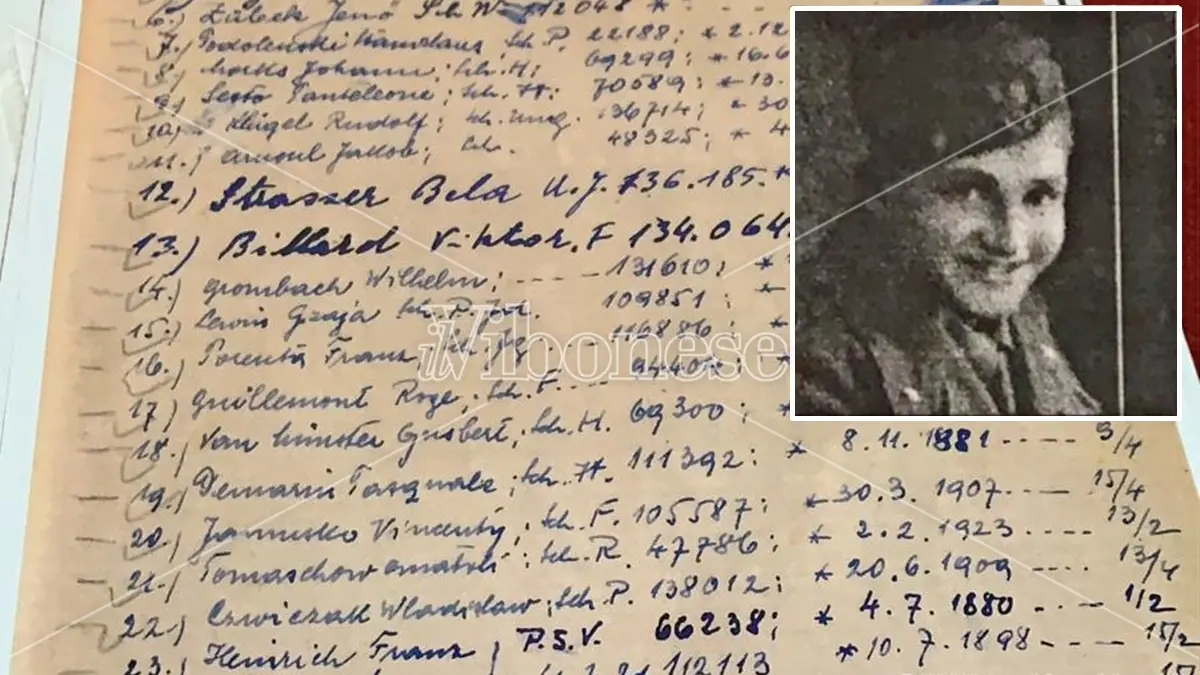 6.) Zübeck Jenö Sch. W. 112048 *
7.) Podolenski Stanislaus; Sch. P. 22188; * 2.12
8.) Johann; Sch. H; 69299; * 16.6
9.) Sesto Panteleone; Sch. It: 70589; * 13.
10.) Klügel Rudolf; Sch. Ung. 136714; * 30
11.) Jakob; Sch. 48325; * 4
12.) Strasser Bela U.J. 136.185. *
13.) Billard Viktor. F 134.064.
14.) Grombach Wilhelm; ---- 131610; *
15.) Lewis Gzaja Sch. P. Jd. 109851; *
16.) Porenta Franz; Sch. Jg ---- 116886; *
17.) Guillemont Roge; Sch. F. ---- 94404; *
18.) Van Münster Gisbert; Sch. H. 69300; * 8.11.1881 ---- 9/4
19.) Demarin Pasquale; Sch. It. 111392; * 30.3.1907 ---- 15/4
20.) Jannusko Vincenty; Sch. F. 105587; * 2.2.1923 ---- 13/2
21.) Tomaschow Anatoli; Sch. R. 47786; * 20.6.1909 ---- 13/4
22.) Czwiczak Wladislaw; Sch. P. 138012; * 4.7.1880 ---- 1/2
23.) Heinrich Franz; P.S.V. 66238; * 10.7.1898 ---- 15/2
112113
ilVibonese